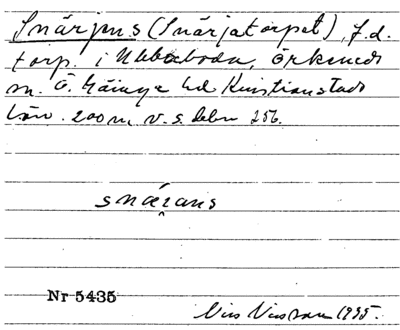 Snärjans (Snärjatorpet), f.d.
torp. i Ubbaboda, Örkeneds
sn. Ö. Göinge hd Kristianstads
län. 200 m v. s. delen 256.
snär̭ans
Nr 5435
1935.